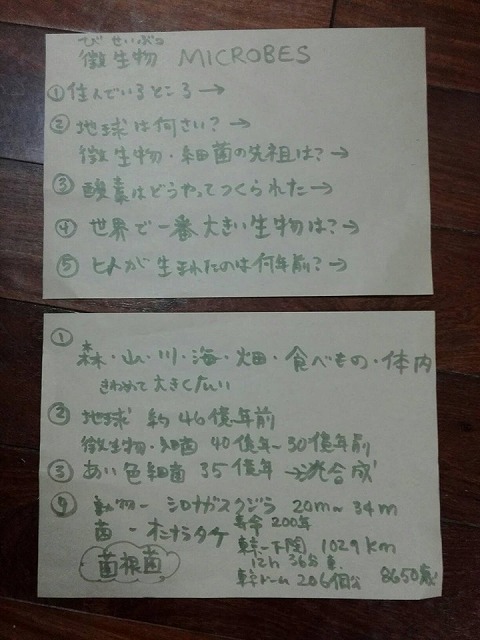 びせいぶつ
微生物 MICROBES
①住んでいるところ→
②地球は何さい?→
微生物・細菌の先祖は?→
③酸素はどうやってつくられた→
④世界で一番大きい生物は?→
⑤ヒトが生まれたのは何年前?→
①
森・山・川・海・畑・食べもの・体内
きわめて大きくない
②地球 約46億年前
微生物・細菌 40億年~30億年前
③あい色細菌 35億年→光合成
④動物ーシロナガスクジラ 20m~34m
寿命200年
菌ーオニナラタケ
菌根菌
東京ー下関 1029km
12h 36分
東京ドーム 206個分 8650歳